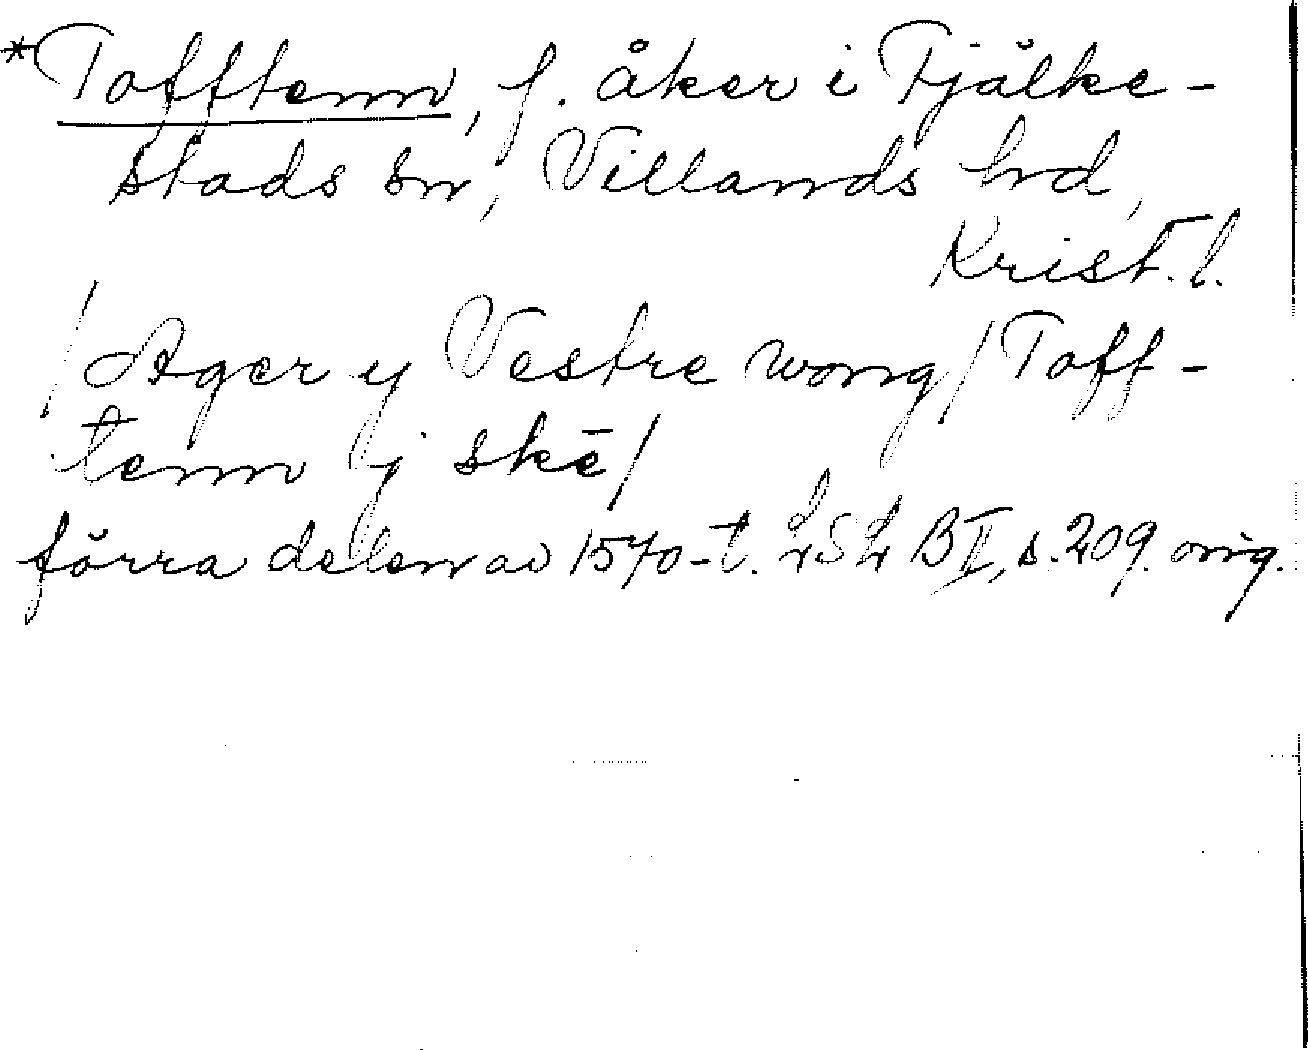 *Tofftenn, f. åker i Fjälke-
stads sn, Villands hd,
Krist. l.
/Ager y Vestre wong/ Toff-
tenn y skē/
förra delen av 1570-t. LSL B II, s. 209. orig.